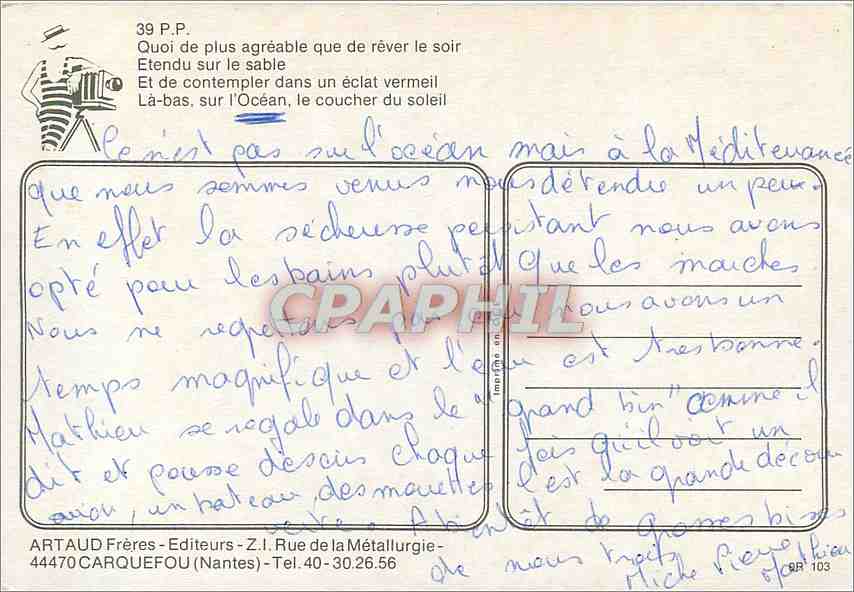 39 P.P.
Quoi de plus agréable que de rêver le soir
Etendu sur le sable
Et de contempler dans un éclat vermeil
Là-bas, sur l'Océan, le coucher du soleil
Ce n'est pas sur l'océan mais à la Méditerranée
que nous sommes venus nous détendre un peu.
En effet la sécheresse persistant nous avons
opté pour les bains plutôt que les marches.
Nous ne regrettons pas car nous avons un
temps magnifique et l'eau est très bonne.
Mathieu se régale dans le "grand bin" comme il
dit et pousse des cris chaque fois qu'il voit un
avion, un bateau, des mouettes c'est la grande décou
verte. A bientôt de grosses bises
de nous trois
Miche Pierre Mathieu
CPAPHIL
Imprimé en
ARTAUD Frères - Editeurs - Z.I. Rue de la Métallurgie -
44470 CARQUEFOU (Nantes) - Tel. 40-30.26.56
103